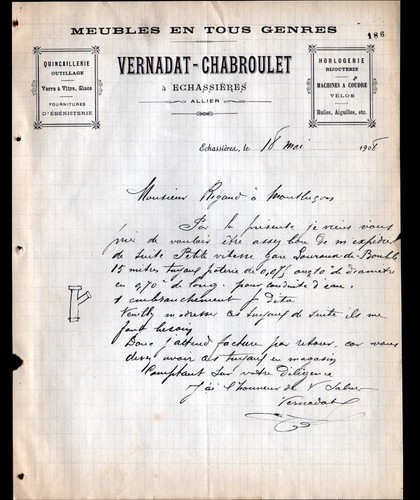 MEUBLES EN TOUS GENRES
186
QUINCAILLERIE
OUTILLAGE
Verre à Vitre, Glace
FOURNITURES
D'ÉBÉNISTERIE
VERNADAT-CHABROULET
à ECHASSIÈRES
ALLIER
HORLOGERIE
BIJOUTERIE
MACHINES A COUDRE
VÉLOS
Huiles, Aiguilles, etc.
Echassières, le 18 mai 1908
Monsieur Rigaud à Montluçon
Par la présente je viens vous
prier de vouloir être assez bon de m expédier
de suite Petite vitesse Gare Louroux-de-Bouble
15 mètres tuyaux poterie de 0,075 au 10 de diamètre
en 0,70 de long. pour conduite d'eau.
1 embranchement f dito
Veuillez m adresser ces tuyaux de suite ils me
font besoin
Donc j'attend facture par retour. car vous
devez avoir ces tuyaux en magasin
Comptant sur votre diligence
J'ai l'honneur de V Saluer
Vernadat